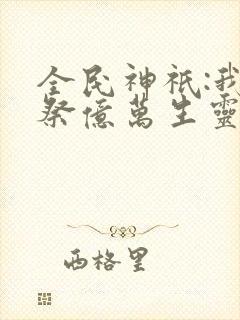 全民神祇:我
祭億萬生靈
西格里